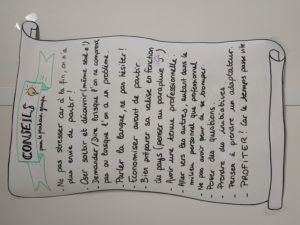 CONSEILS
pour le prochain groupe
- Ne pas stresser car à la fin, on n'a
plus envie de partir !
- Oser sortir et découvrir (même seule !)
- Demander/dire lorsque l'on ne comprend
pas ou lorsque l'on a un problème.
- Parler la langue, ne pas hésiter !
- Economiser avant de partir.
- Bien préparer sa valise en fonction
du pays (penser au parapluie)
- Avoir une tenue professionnelle.
- Aller vers les autres, surtout dans le
milieu personnel que professionnel
- Ne pas avoir peur de se tromper.
- Poser des questions.
- Prendre des initiatives.
- Penser à prendre un adaptateur.
- PROFITER ! Car le temps passe vite